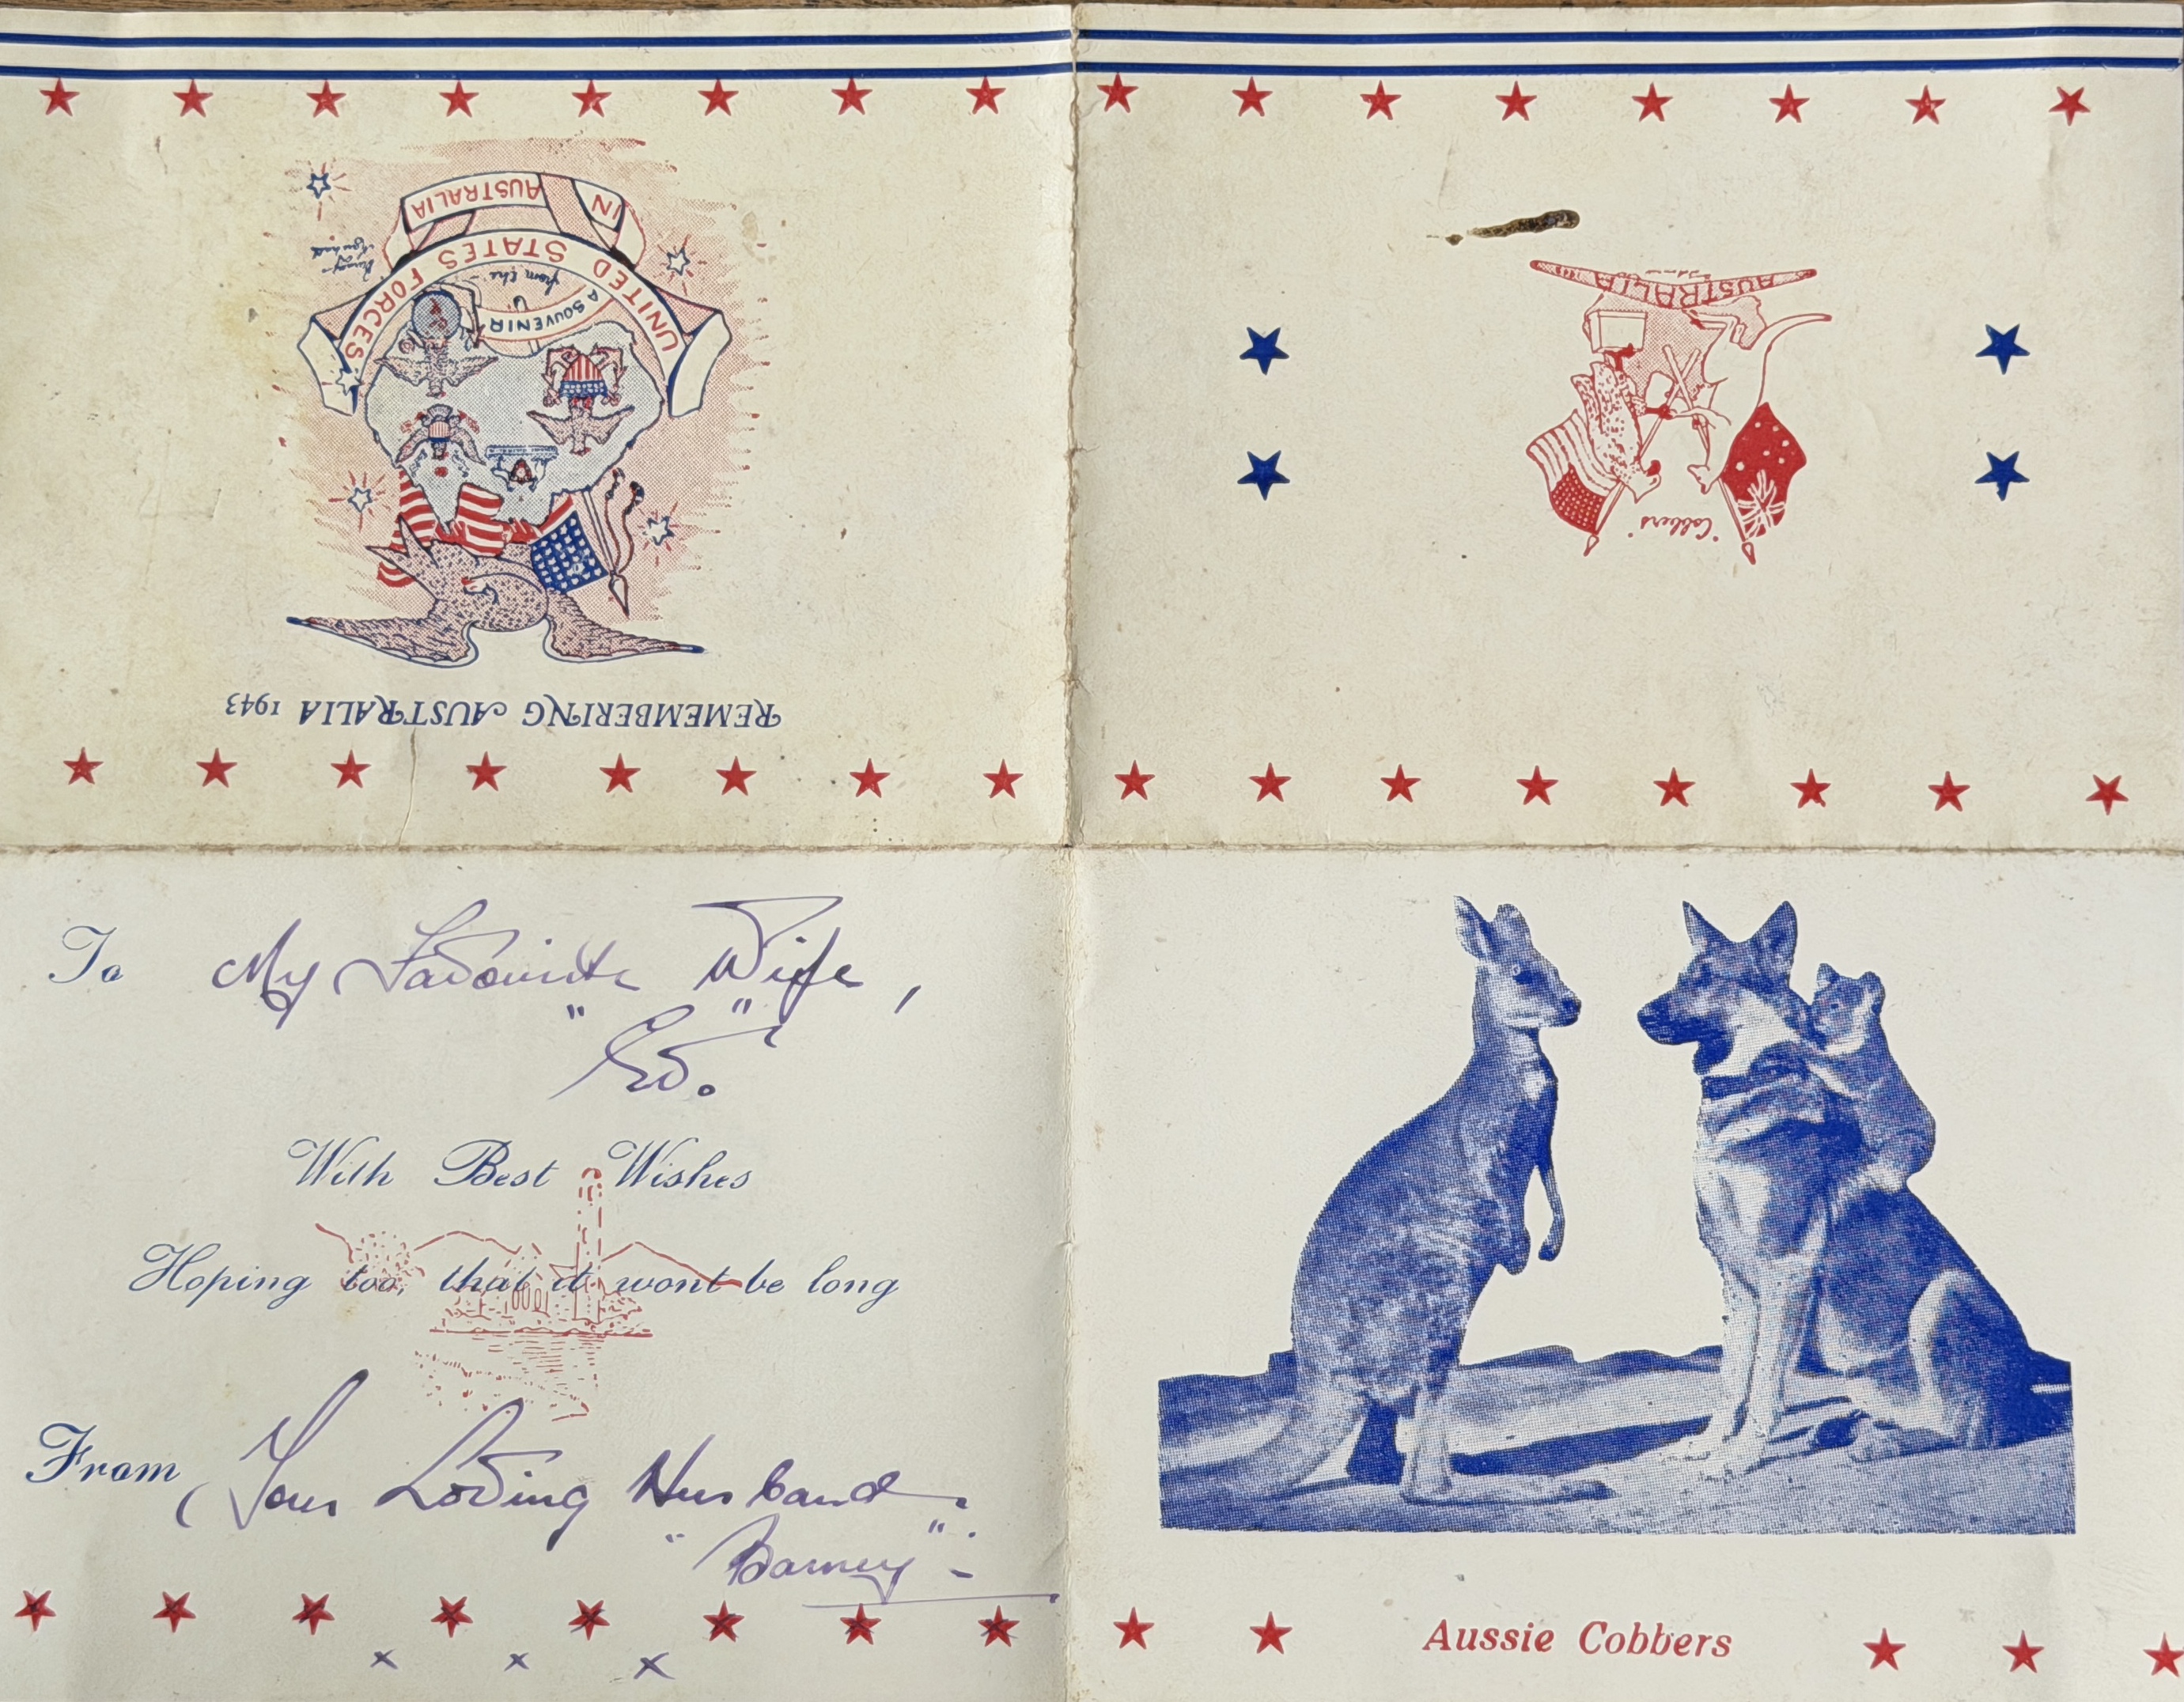 A SOUVENIR
from the
UNITED STATES FORCES
IN AUSTRALIA
REMEMBERING AUSTRALIA 1943
"Cobbers"
AUSTRALIA
To My Favourite Wife,
"Ed."
With Best Wishes
Hoping too, that it wont be long
From Your Loving Husband.
"Barney".
x x x
Aussie Cobbers